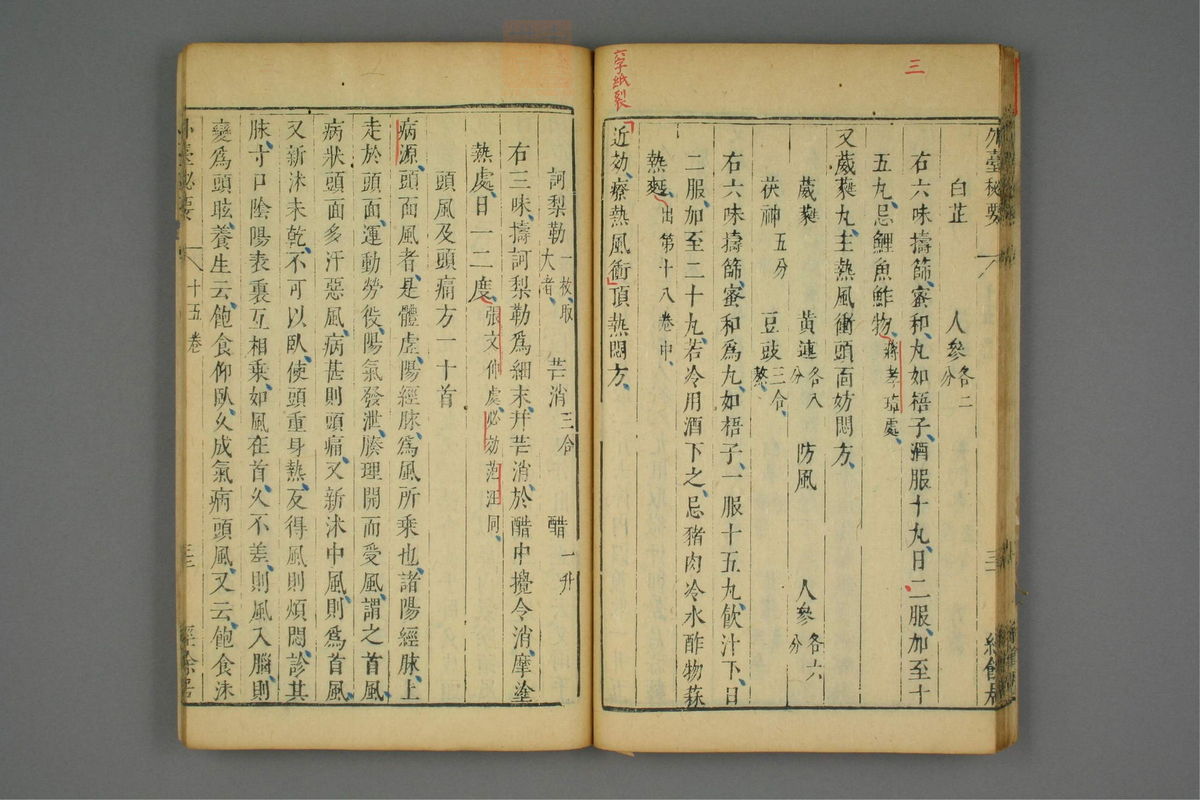 三
六字紙裂
外臺秘要
白芷 人參各二分
右六味擣篩、蜜和、丸如梧子、酒服十九、日二服、加至十
五丸、忌鯉魚鮓物、蔣孝琬處、
又葳蕤丸、主熱風衝頭面妨悶方、
葳蕤 黃連各八分 防風 人參各六分
茯神五分 豆豉三合、熬、
右六味擣篩、蜜和爲丸、如梧子、一服十五丸、飲汁下、日
二服、加至二十丸、若冷用酒下之、忌豬肉冷水酢物蒜
熱麪、出第十八卷中、
近効、療熱風衝頂熱悶方、
訶梨勒一枚、取大者、 芒消三合 醋一升
右三味、擣訶梨勒爲細末、并芒消、於醋中攪令消、摩塗
熱處、日一二度、張文仲處、必効范汪同、
頭風及頭痛方一十首
病源、頭面風者、是體虛、陽經脉、爲風所乘也、諸陽經脉、上
走於頭面、運動勞役、陽氣發泄、腠理開而受風、謂之首風、
病狀頭面多汗惡風、病甚則頭痛、又新沐中風、則爲首風、
又新沐未乾、不可以臥、使頭重身熱、反得風則煩悶、診其
脉、寸口陰陽表裏互相乘、如風在首、久不差、則風入腦、則
變爲頭眩、養生云、飽食仰臥、久成氣病頭風、又云、飽食沐
十五卷